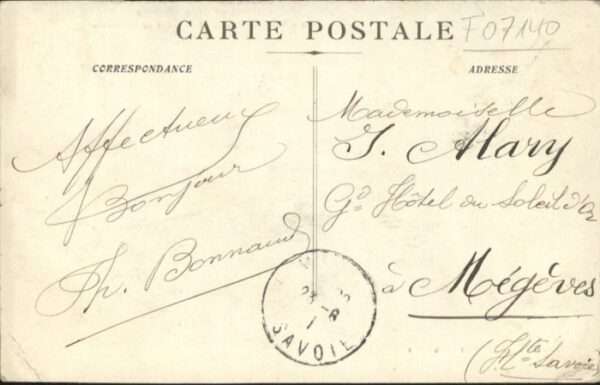 CARTE POSTALE
F07140
CORRESPONDANCE
ADRESSE
Affectueux
Bonjour
Th. Bonnaud
Mademoiselle
J. Mary
Gd Hôtel du Soleil d'Or
à Mégèves
(Hte Savoie)
SAVOIE